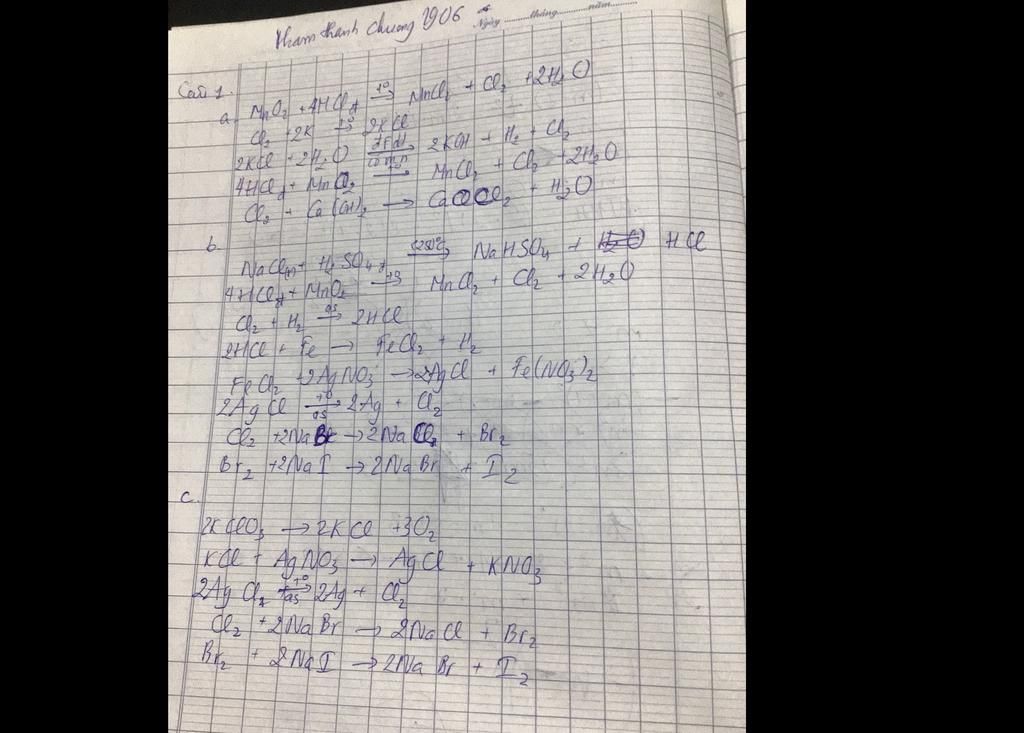 Phạm thành chương 1906
Ngày .......... tháng .......... năm ..........
Câu 1.
a. MnO2 + 4HClđ t°→ MnCl2 + Cl2 + 2H2O
Cl2 + 2K t°→ 2KCl
2KCl + 2H2O đfdd→ có m.n 2KOH + H2 + Cl2
4HClđ + MnO2 t°→ MnCl2 + Cl2 + 2H2O
Cl2 + Ca(OH)2 → CaOCl2 + H2O
b.
NaCl + H2SO4 ≤250°C→ NaHSO4 + HCl
4HClđ + MnO2 t°→ MnCl2 + Cl2 + 2H2O
Cl2 + H2 as→ 2HCl
2HCl + Fe → FeCl2 + H2
FeCl2 + 2AgNO3 → 2AgCl + Fe(NO3)2
2AgCl t°→ as 2Ag + Cl2
Cl2 + 2NaBr → 2NaCl + Br2
Br2 + 2NaI → 2NaBr + I2
c.
2KClO3 → 2KCl + 3O2
KCl + AgNO3 → AgCl + KNO3
2AgCl2 t°→ as 2Ag + Cl2
Cl2 + 2NaBr → 2NaCl + Br2
Br2 + 2NaI → 2NaBr + I2